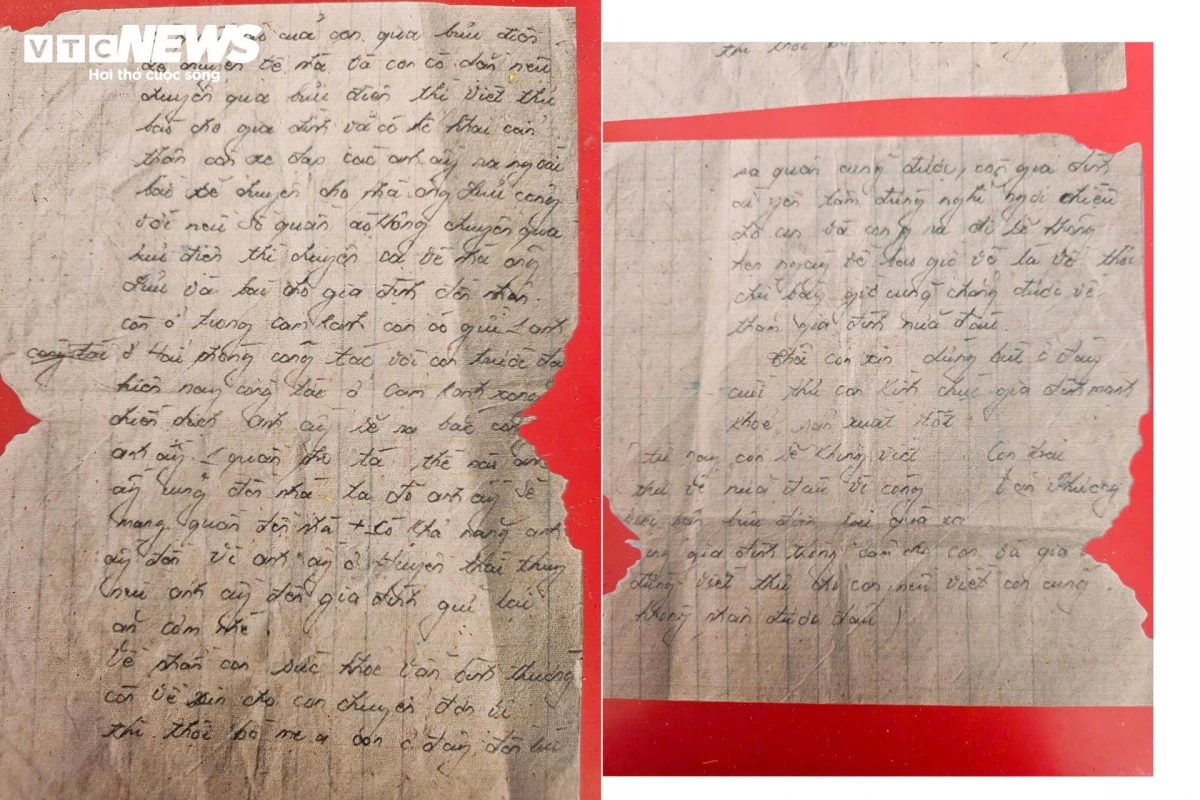 VTC NEWS
Hơi thở cuộc sống
của con qua bưu điện
để chuyển về nhà và con có dặn nếu
chuyển qua bưu điện thì viết thư
báo cho gia đình và có kê khai cẩn
thận con xe đạp các anh ấy ra ngoài
bắc sẽ chuyển cho nhà ông Lưu cùng
với nếu số quần áo không chuyển qua
bưu điện thì chuyển cả về nhà ông
Lưu và báo cho gia đình đến nhận.
còn ở trong cam Ranh con có gửi 1 anh
công tác ở Hải phòng công tác với con trước đây
hiện nay công tác ở Cam Ranh xong
chiến dịch anh ấy sẽ ra bắc con
anh ấy 1 quần thế nào anh
ấy cũng đến nhà ta đó anh ấy sẽ
mang quần đến nhà + Có khả năng anh
ấy đến vì anh ấy ở Huyện thái thụy
nếu anh ấy đến gia đình giữ lại
ăn cơm nhé.
Về phần con sức khỏe vẫn bình thường
còn về xin cho con chuyển đơn vị
thì thôi bố mẹ ạ con ở đây đến lúc
thì thôi bố
ra quân cũng được, còn gia đình
cứ yên tâm đừng nghĩ ngợi nhiều
đó con và con ra đi sẽ không
hẹn ngày về bao giờ về là về thôi
chứ bây giờ cũng chẳng được về
thăm gia đình nữa đâu
Thôi con xin dừng bút ở đây
cuối thư con kính chúc gia đình mạnh
khỏe, sản xuất tốt
(từ nay con sẽ không viết Con trai
thư về nữa đâu vì công Phương
bưu điện lại quá xa
mong gia đình thông cảm cho con và gia
đừng viết thư cho con, nếu viết con cũng
không nhận được đâu)